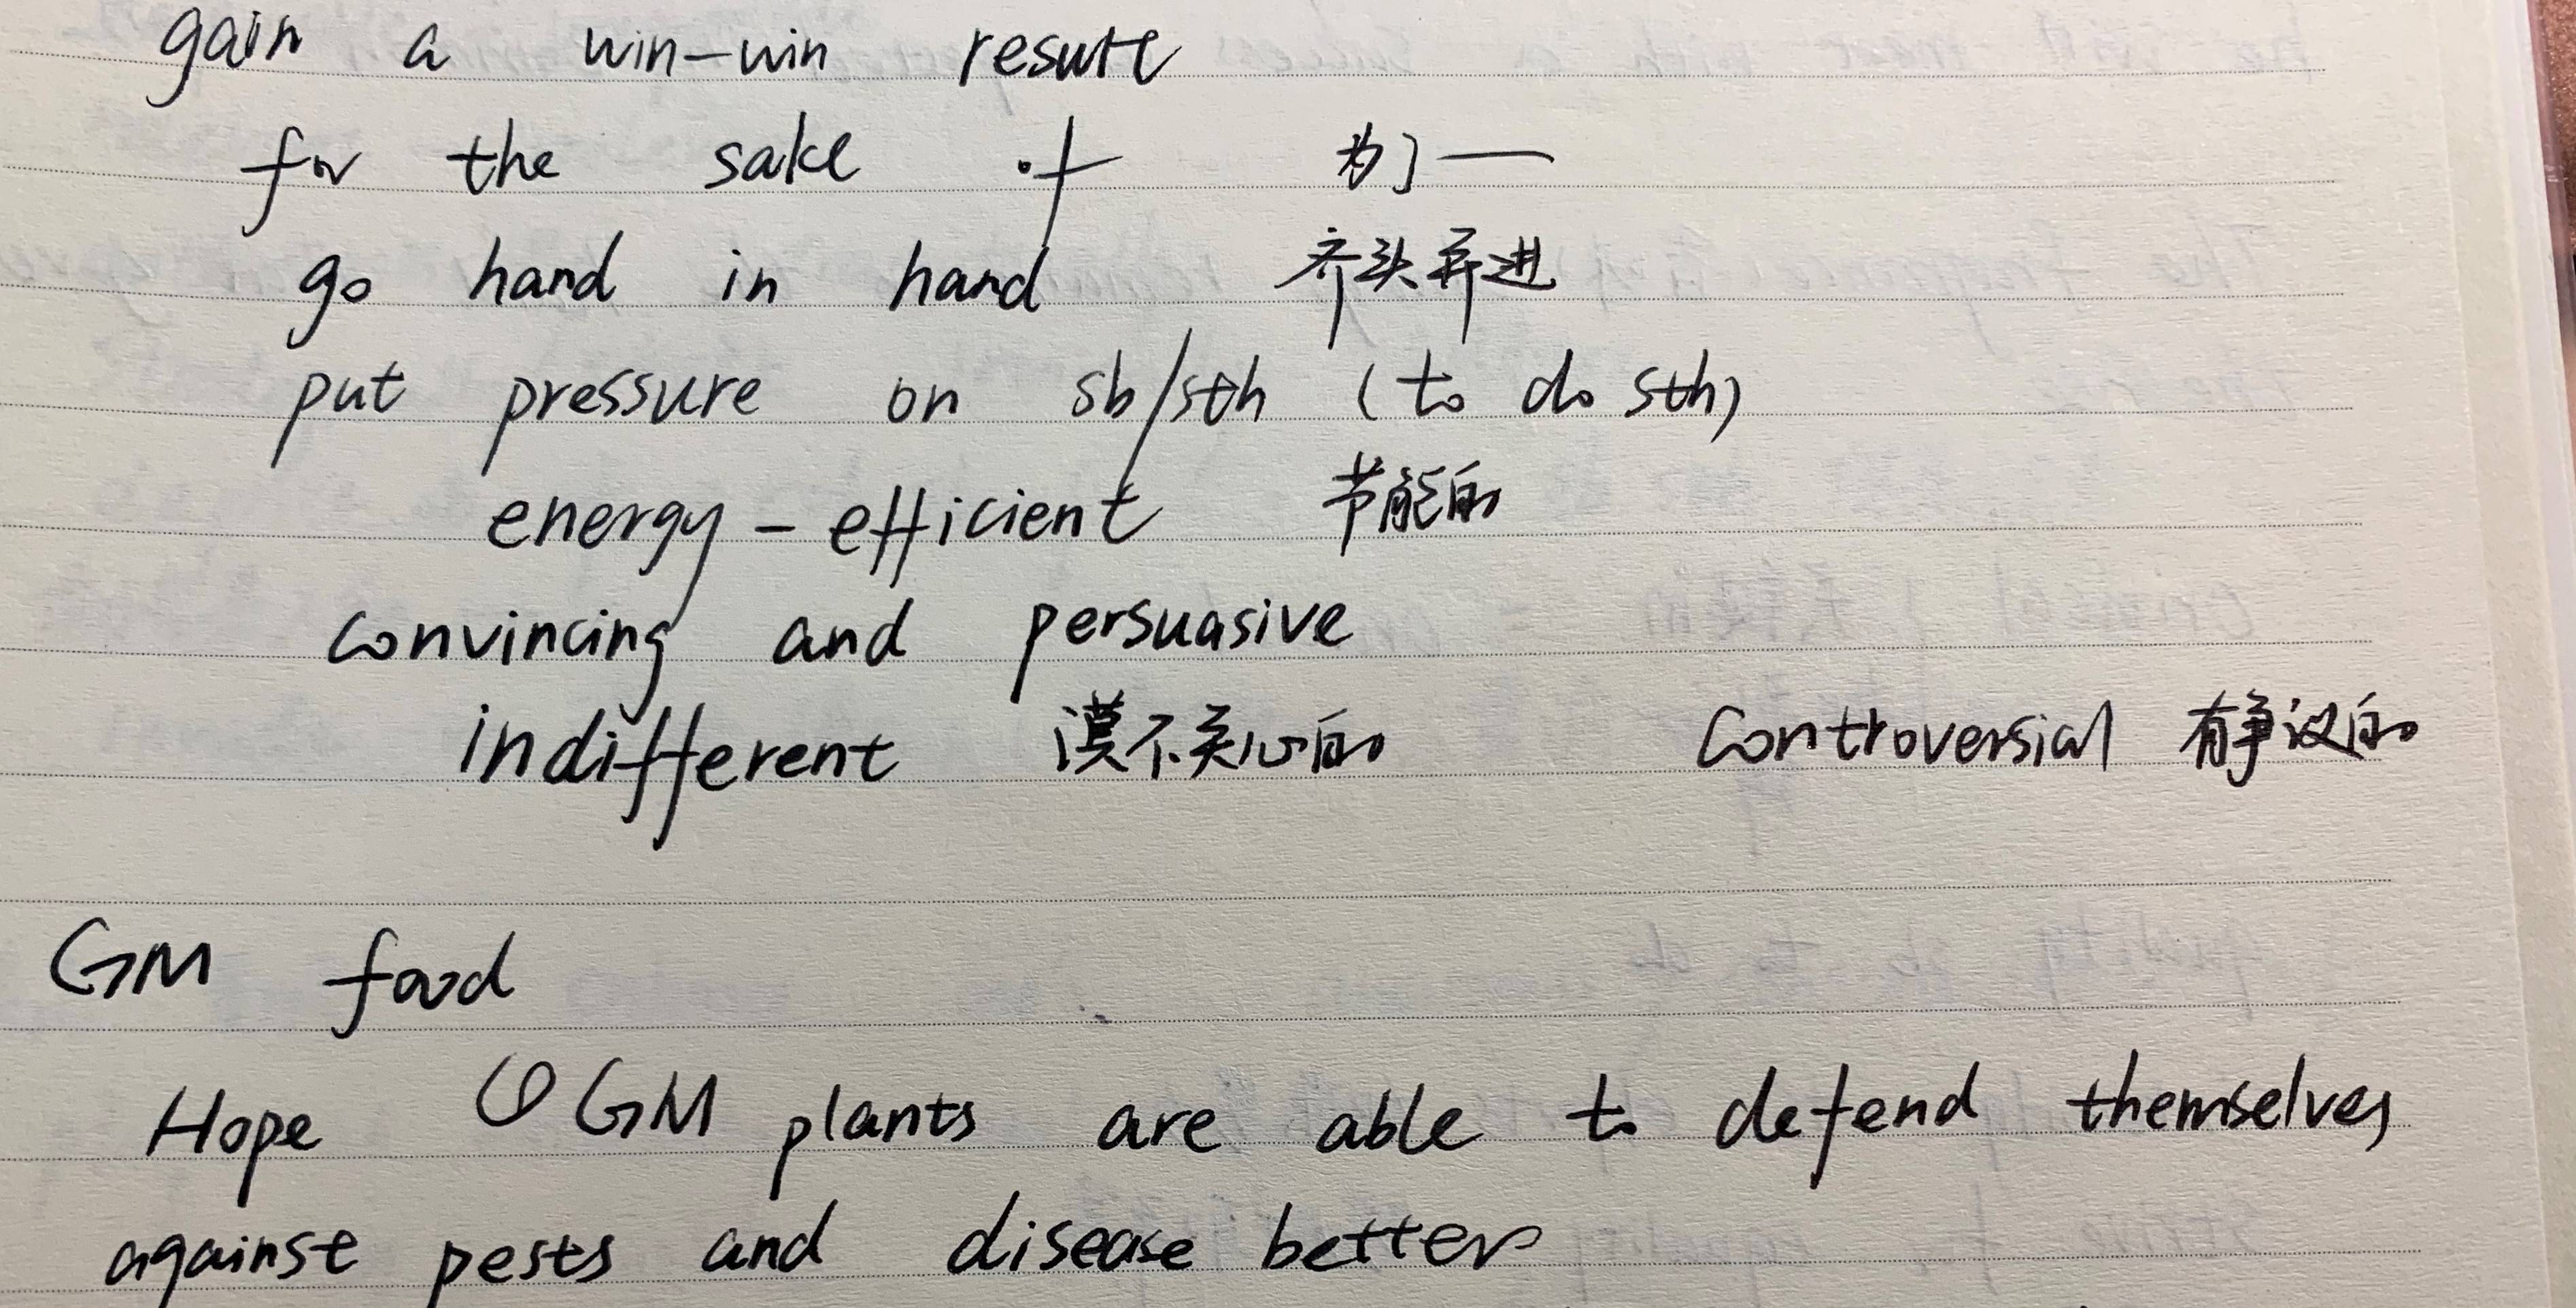 gain a win-win result
for the sake of 为了—
go hand in hand 齐头并进
put pressure on sb/sth (to do sth)
energy-efficient 节能的
convincing and persuasive
indifferent 漠不关心的 controversial 有争议的
GM food
Hope ① GM plants are able to defend themselves
against pests and disease better